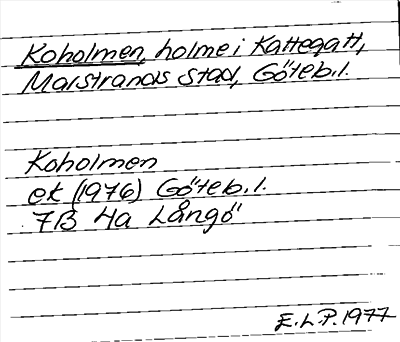 Koholmen, holme i Kattegatt,
Marstrands stad, Göteb. l.
Koholmen
ek (1976) Göteb. l.
7B 4a Långö
E.L.P. 1977